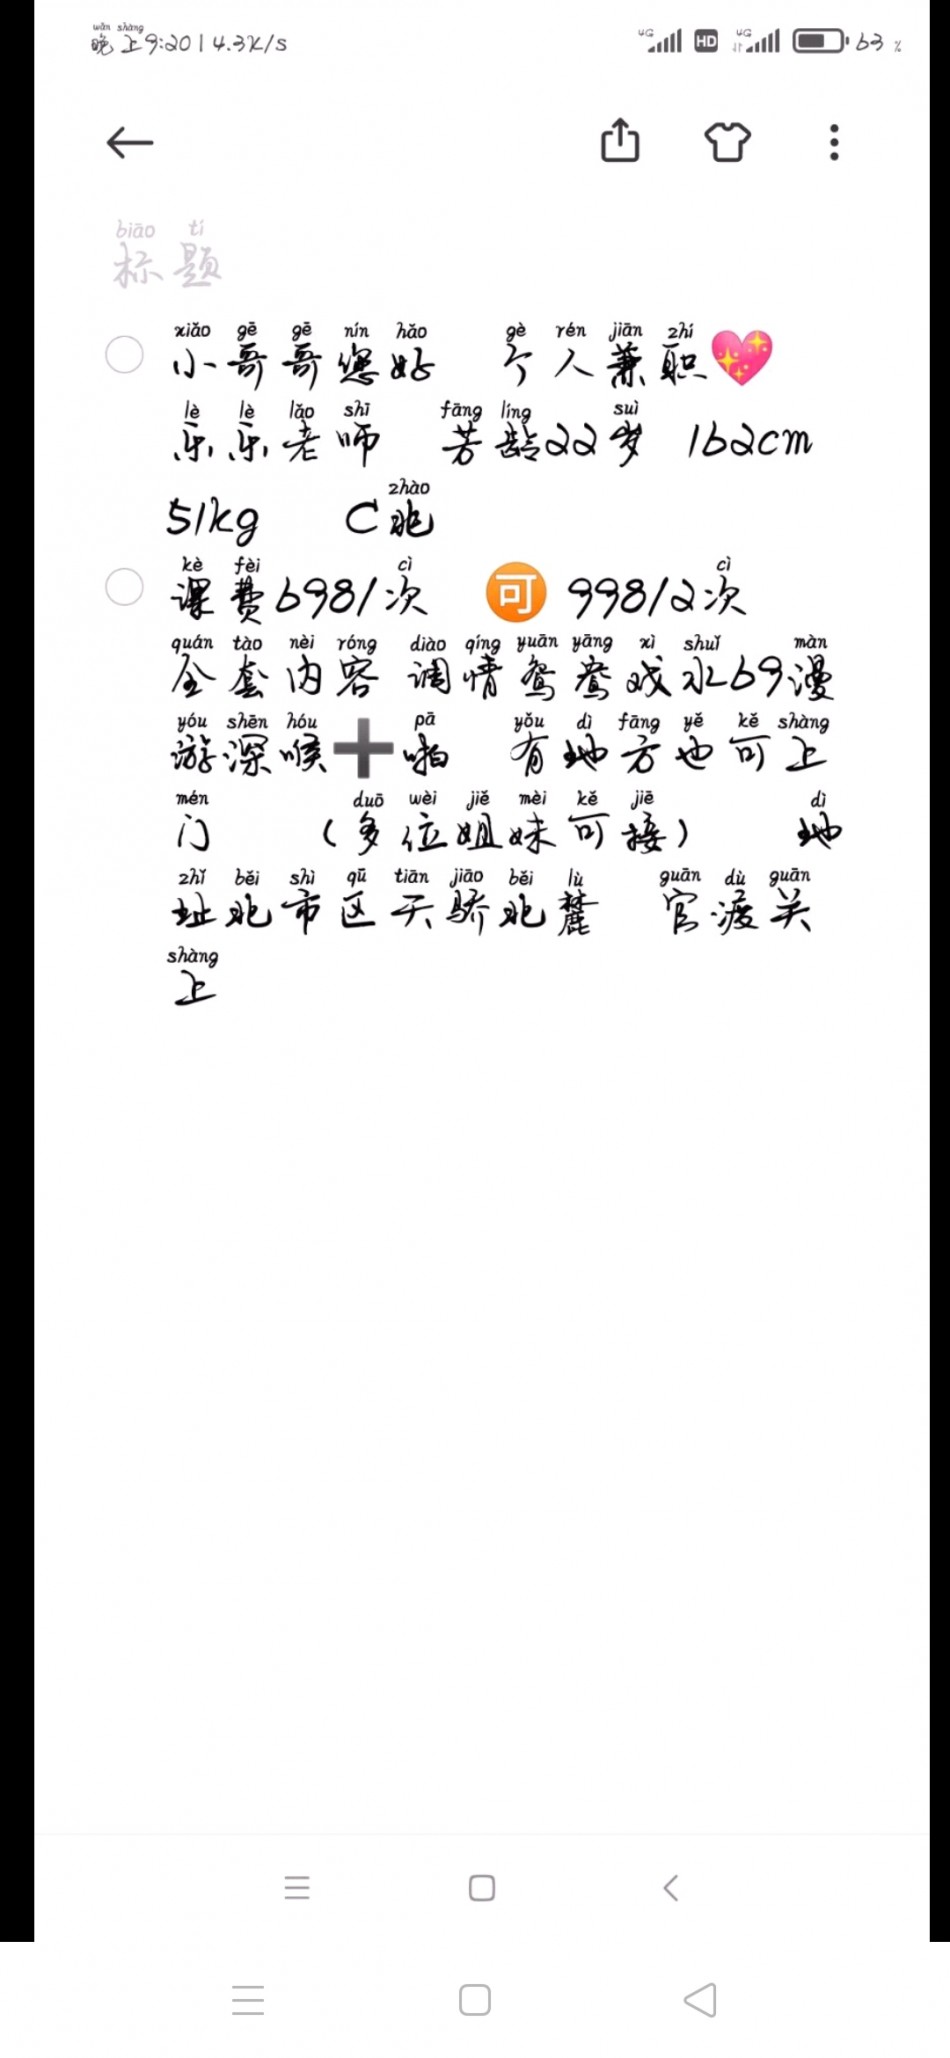 wǎn shàng
晚上9:20 | 4.3K/s
4G HD 4G 63 %
biāo tí
标题
xiǎo gē gē nín hǎo gè rén jiān zhí
小哥哥您好 个人兼职💖
lè lè lǎo shī fāng líng suì
乐乐老师 芳龄22岁 162cm
zhào
51kg C兆
kè fèi cì cì
课费698/次 🉑 998/2次
quán tào nèi róng diào qíng yuān yāng xì shuǐ màn
全套内容 调情鸳鸯戏水69漫
yóu shēn hóu pā yǒu dì fāng yě kě shàng
游深喉➕啪 有地方也可上
mén duō wèi jiě mèi kě jiē dì
门 (多位姐妹可接) 地
zhǐ běi shì qū tiān jiāo běi lù guān dù guān
址北市区天骄北麓 官渡关
shàng
上